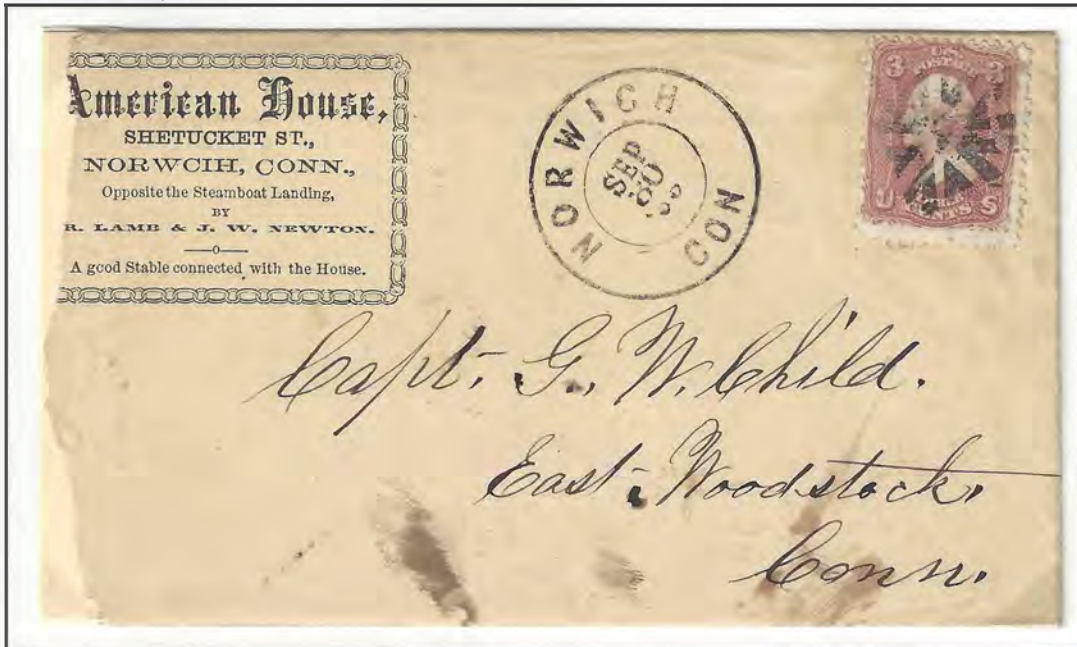 American House,
SHETUCKET ST.,
NORWCIH, CONN.,
Opposite the Steamboat Landing,
BY
R. LAMB & J. W. NEWTON.
—o—
A good Stable connected with the House.
NORWICH
SEP
30
CON
3 U.S. 3
POSTAGE
U CENTS S
Capt. G. W. Child.
East Woodstock,
Conn.